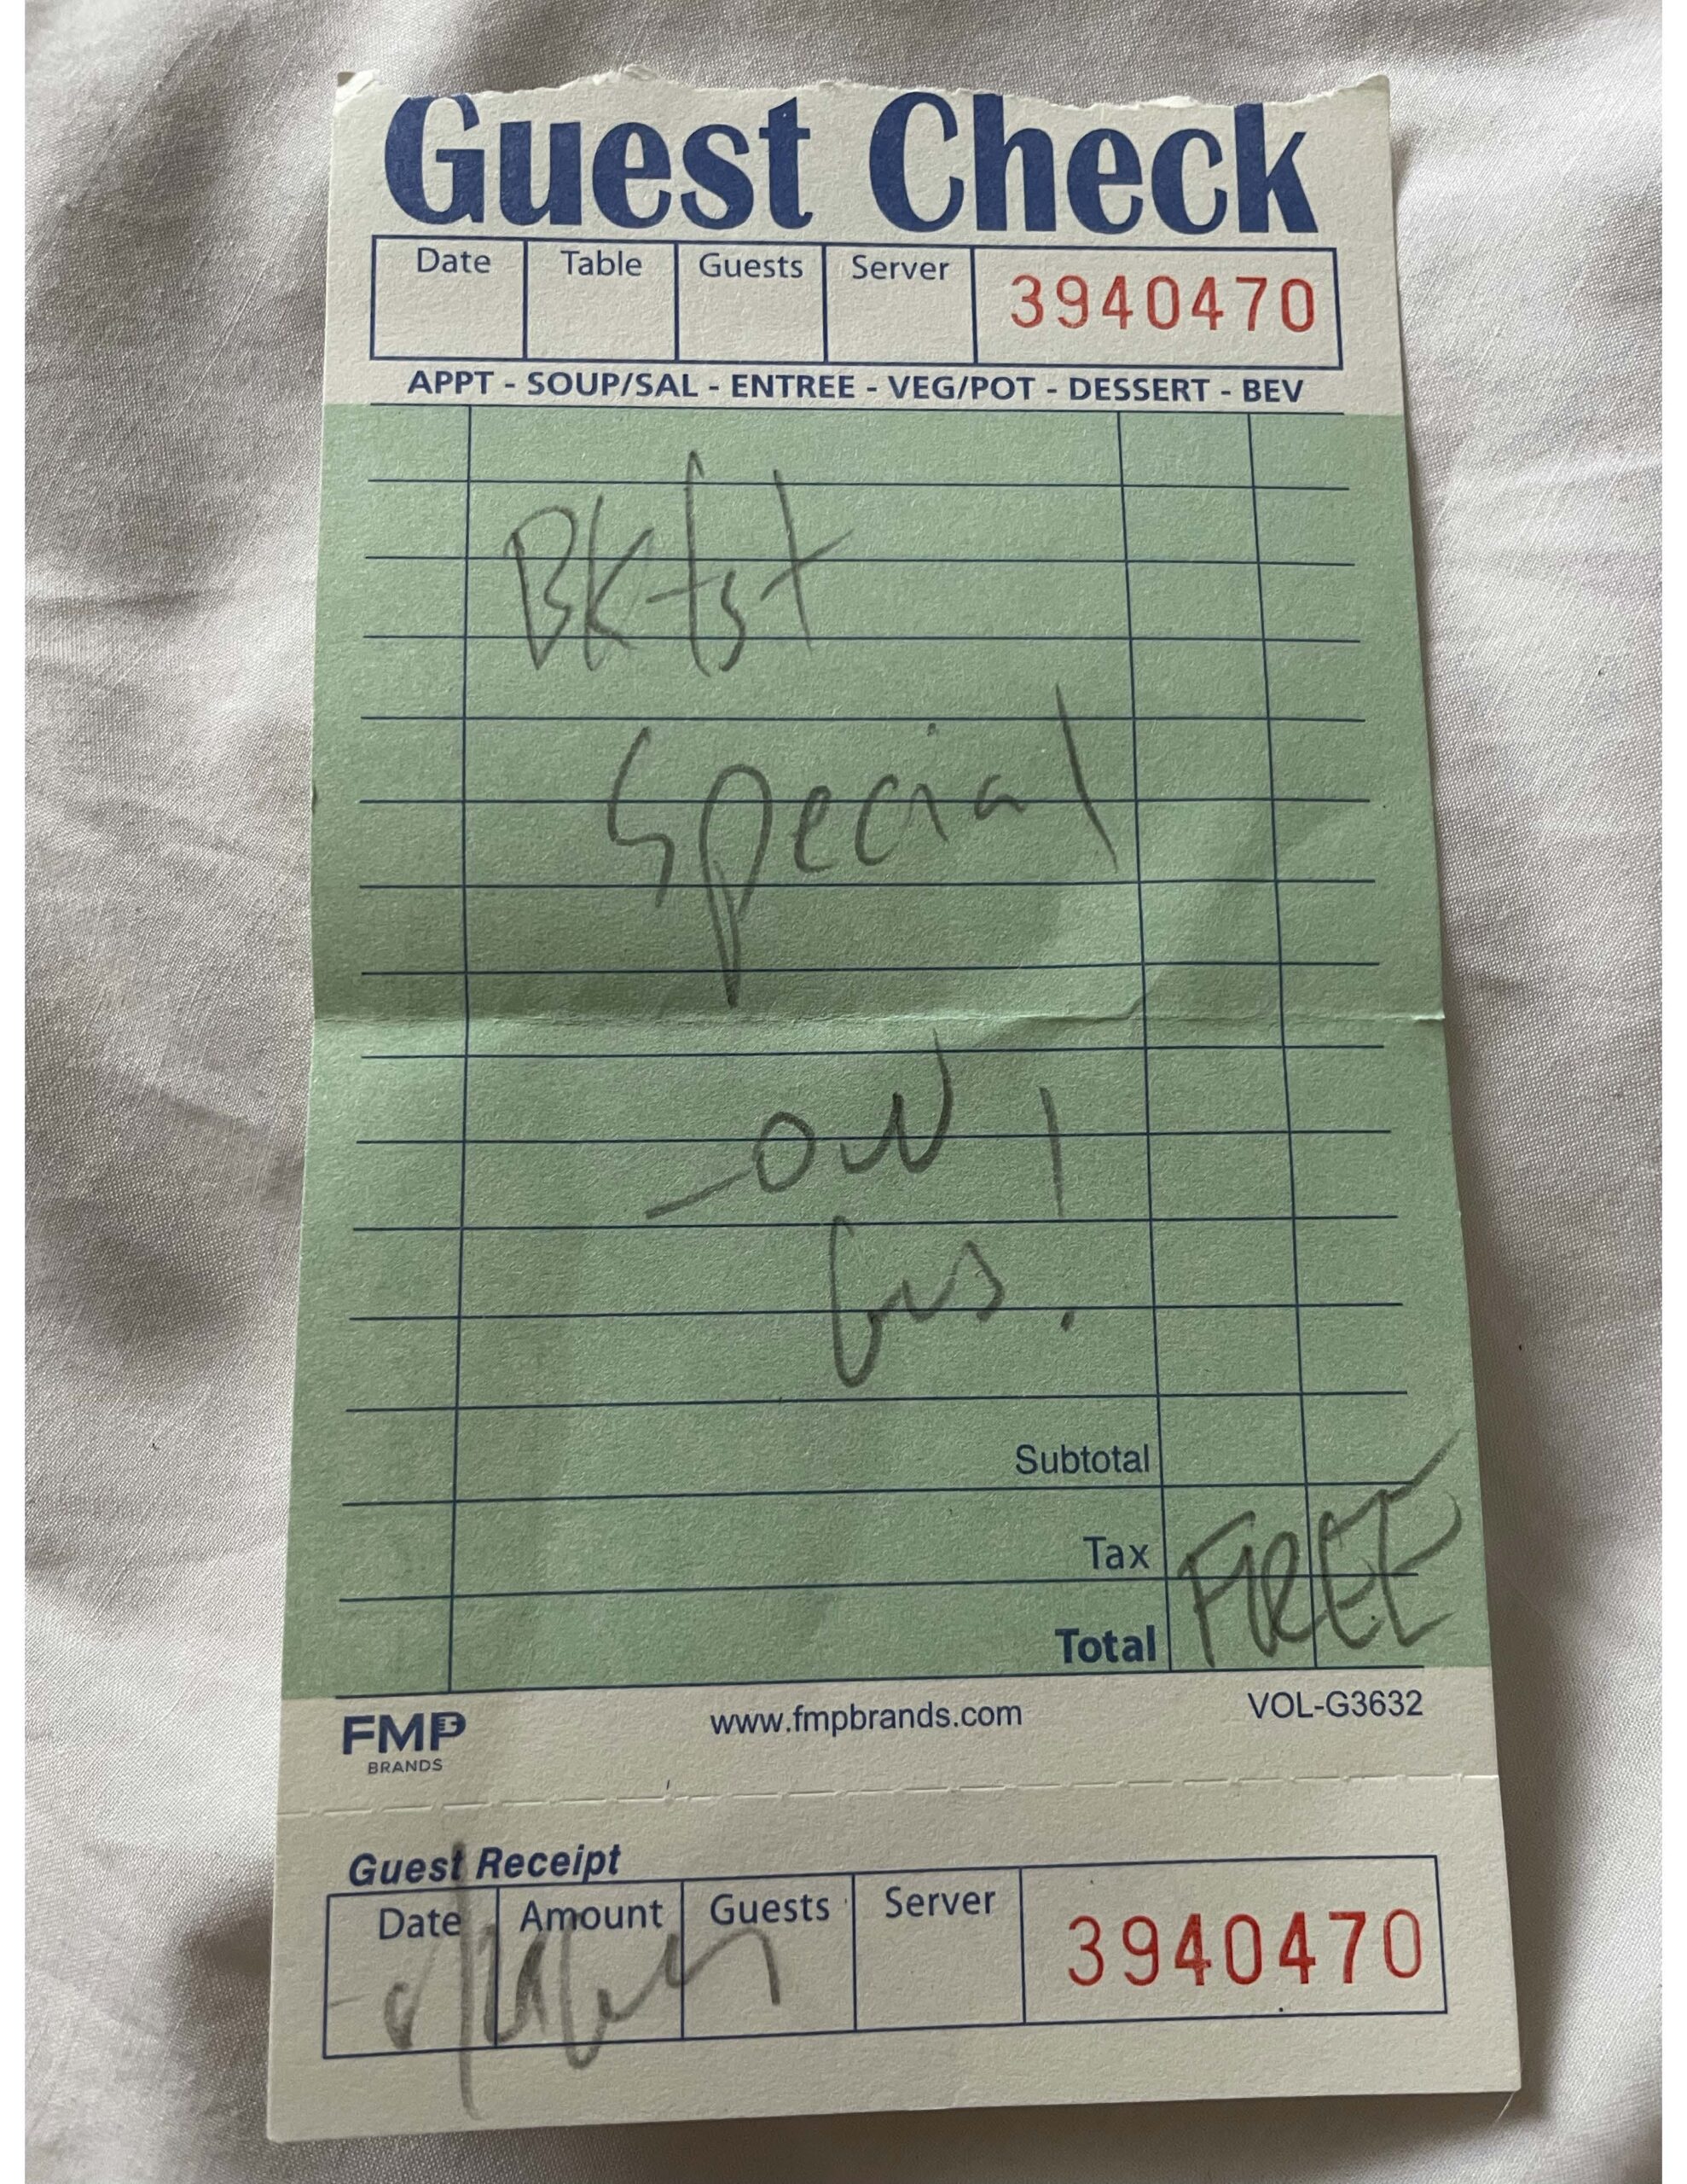 Guest Check
Date Table Guests Server 3940470
APPT - SOUP/SAL - ENTREE - VEG/POT - DESSERT - BEV
Bkfst
Special
Subtotal
Tax
Total FREE
FMP
BRANDS
www.fmpbrands.com
VOL-G3632
Guest Receipt
Date Amount Guests Server 3940470